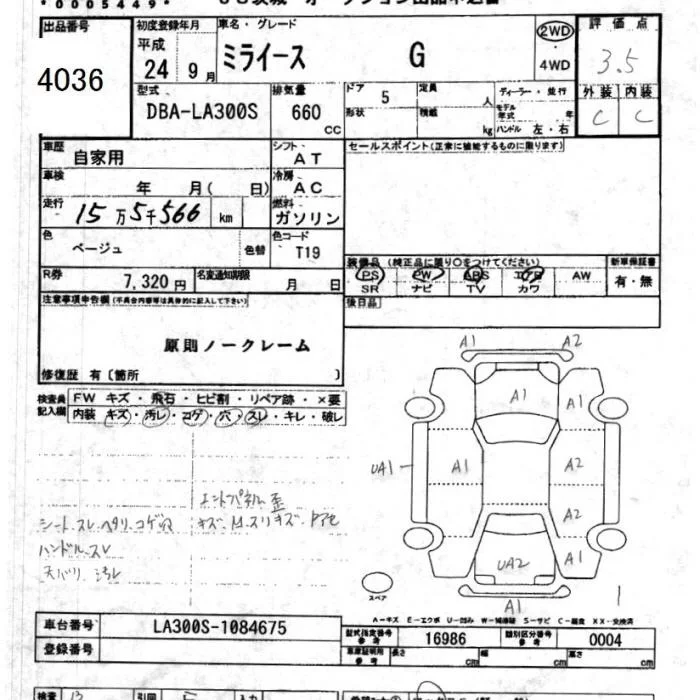 ・0005449・
出品番号 初度登録年月 車名・グレード 2WD 評価点
4036 平成 24 9月 ミライース G ・4WD 3.5
型式 排気量 ドア 5 定員 人 ディーラー・並行 外装 内装
DBA-LA300S 660 cc 形状 積載 kg モデル年式 年 ハンドル 左・右 C C
車歴 自家用 シフト AT セールスポイント(正常に機能するものに限ります)
車検 年 月( 日) 冷房 AC
走行 15万5千566 km 燃料 ガソリン
色 ベージュ 色替 色コード T19
装備品 (純正品に限り○をつけてください) 新車保証書
R券 7,320円 名変通知期限 月 日 PS PW ABS エアB AW 有・無
SR ナビ TV カワ
注意事項申告欄(不具合内容等は具体的に記入して下さい) 後日品
原則ノークレーム
修復歴 有〔箇所 〕
検査員記入欄 FW キズ・飛石・ヒビ割・リペア跡・×要
内装 キズ・汚レ・コゲ・穴・スレ・キレ・破レ
A1 A2
A1 A1
UA1 A1 A2
A2
UA2 A1
A1
エンドパネル歪
シート スレ ヘタリ コゲ穴 キズ、M、スリキズ
ハンドル スレ
天バリ 汚レ
スペア
A-キズ E-エクボ U-凹み W-補修跡 S-サビ C-腐食 XX-交換済
車台番号 LA300S-1084675 型式指定番号 参考 16986 類別区分番号 参考 0004
登録番号 車庫証明用 参考 長さ cm 幅 cm 高さ cm
検査 13 引回 入力